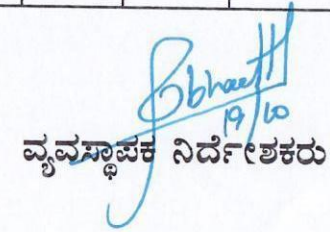 19/10
ವ್ಯವಸ್ಥಾಪಕ ನಿರ್ದೇಶಕರು